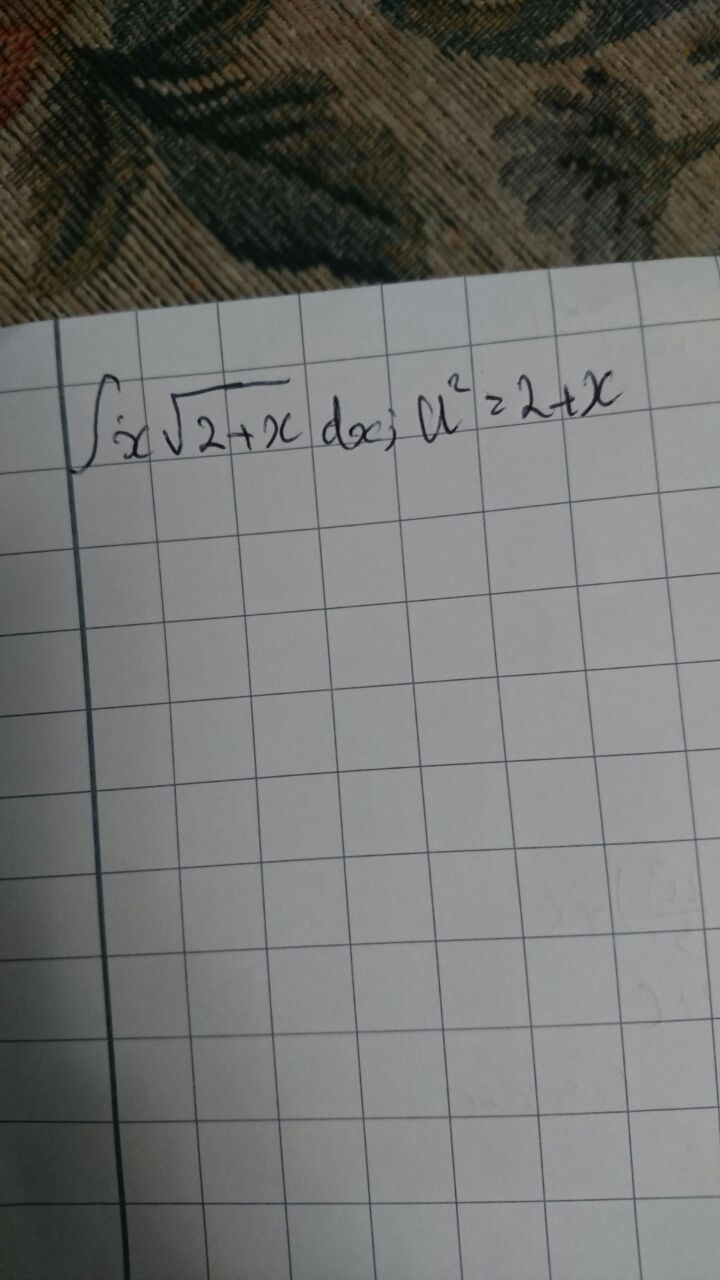 ∫x√2+x dx; u² = 2+x